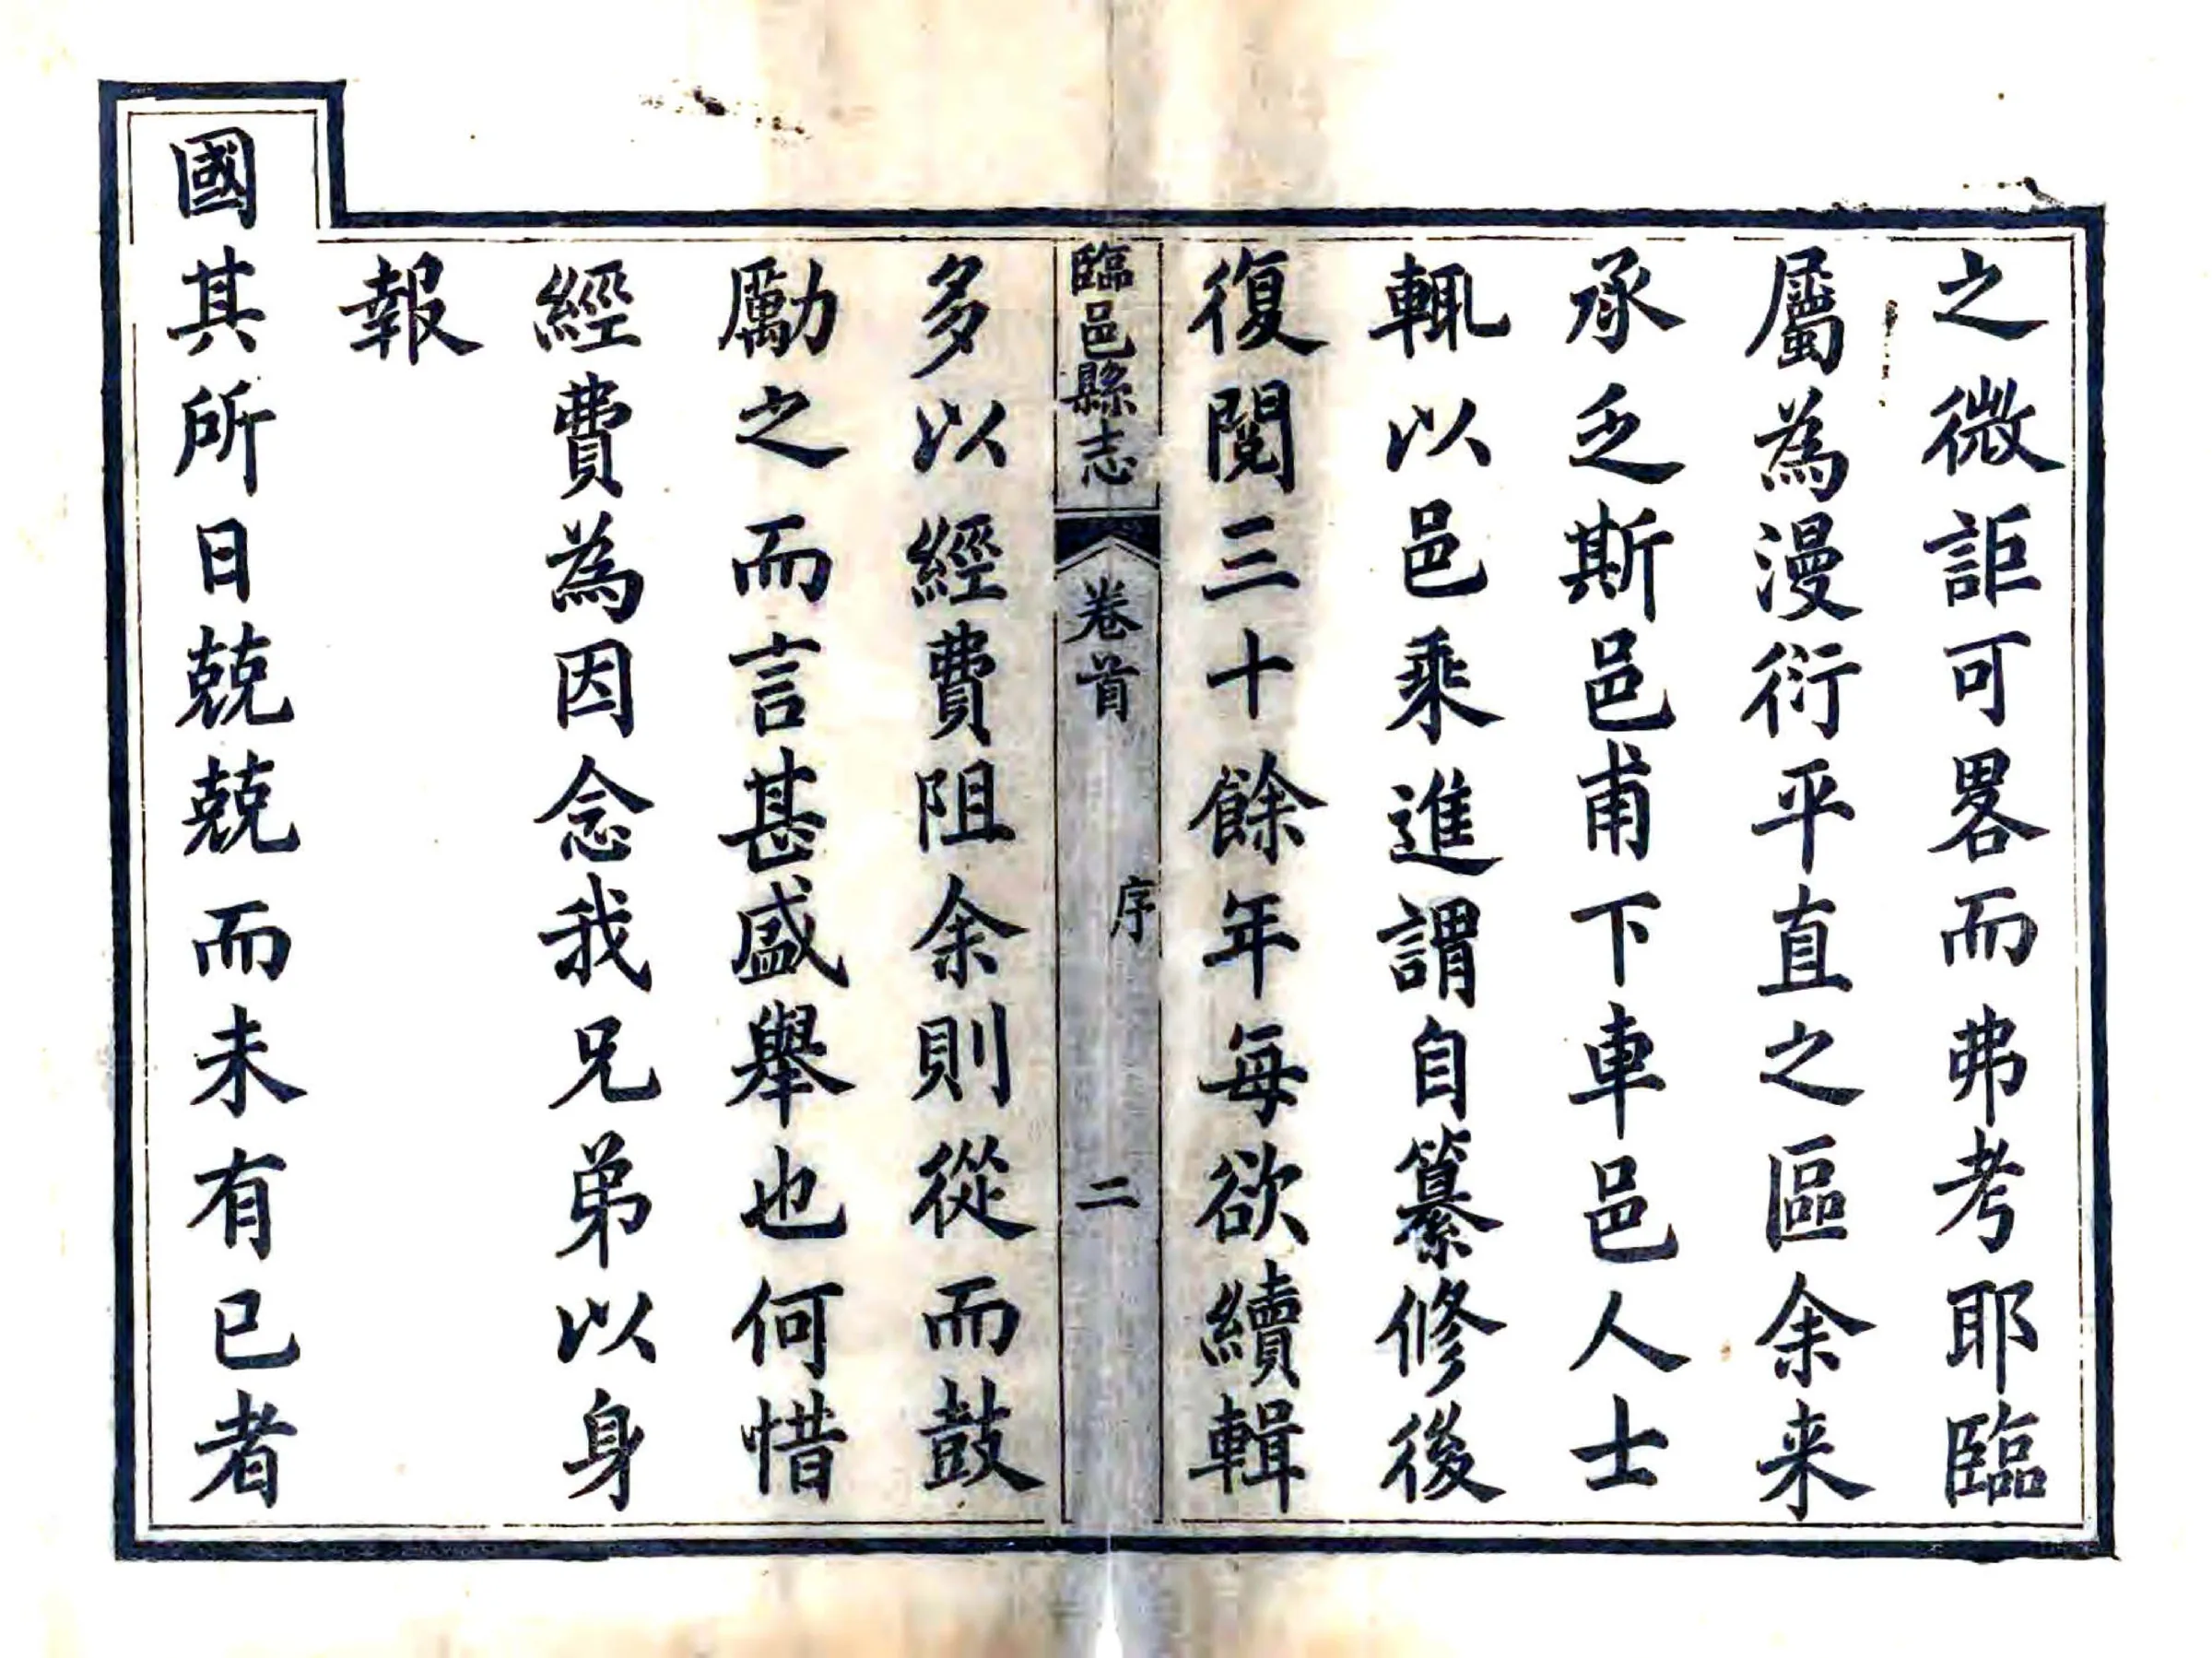 之微詎可畧而弗考耶臨
屬為漫衍平直之區余来
承乏斯邑甫下車邑人士
輒以邑乘進謂自纂修後
復閱三十餘年每欲續輯
臨邑縣志 卷首 序 二
多以經費阻余則從而鼓
勵之而言甚盛舉也何惜
經費為因念我兄弟以身
報
國其所日兢兢而未有已者